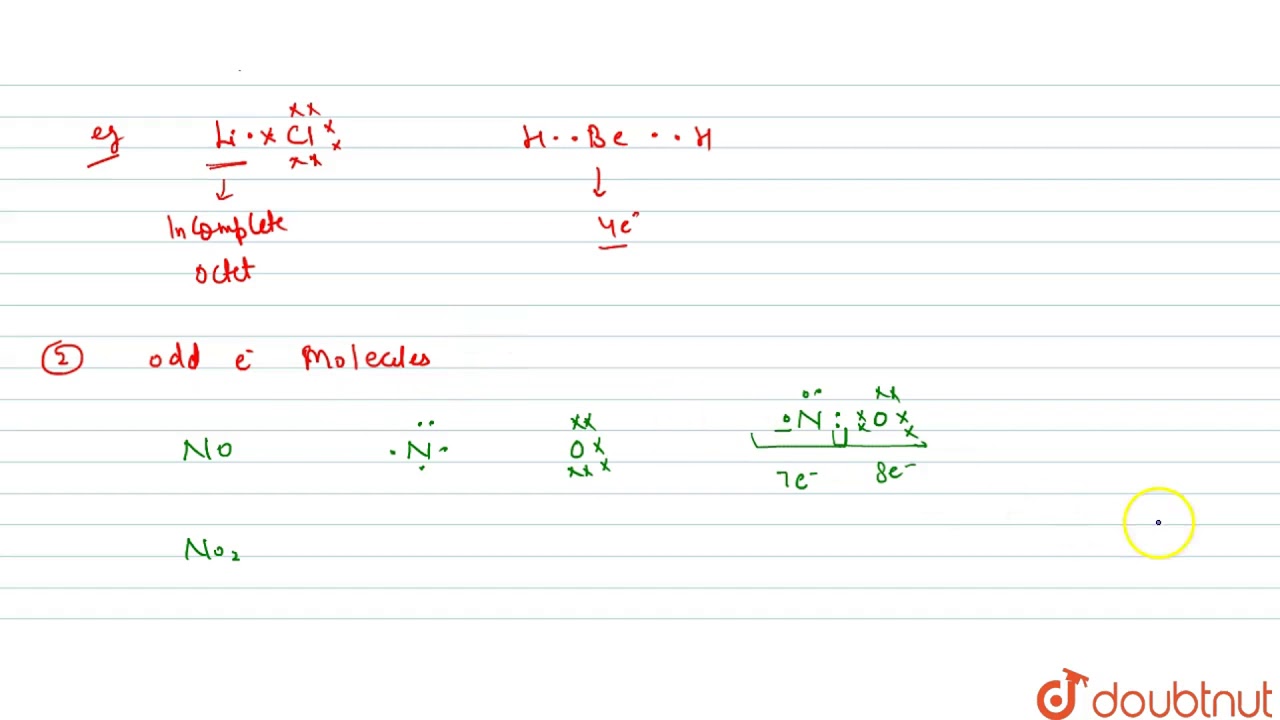 eg Li · x Cl H · · Be · · H
Incomplete 4e⁻
Octet
② odd e⁻ Molecules
NO N O N : O
7e⁻ 8e⁻
NO₂
doubtnut